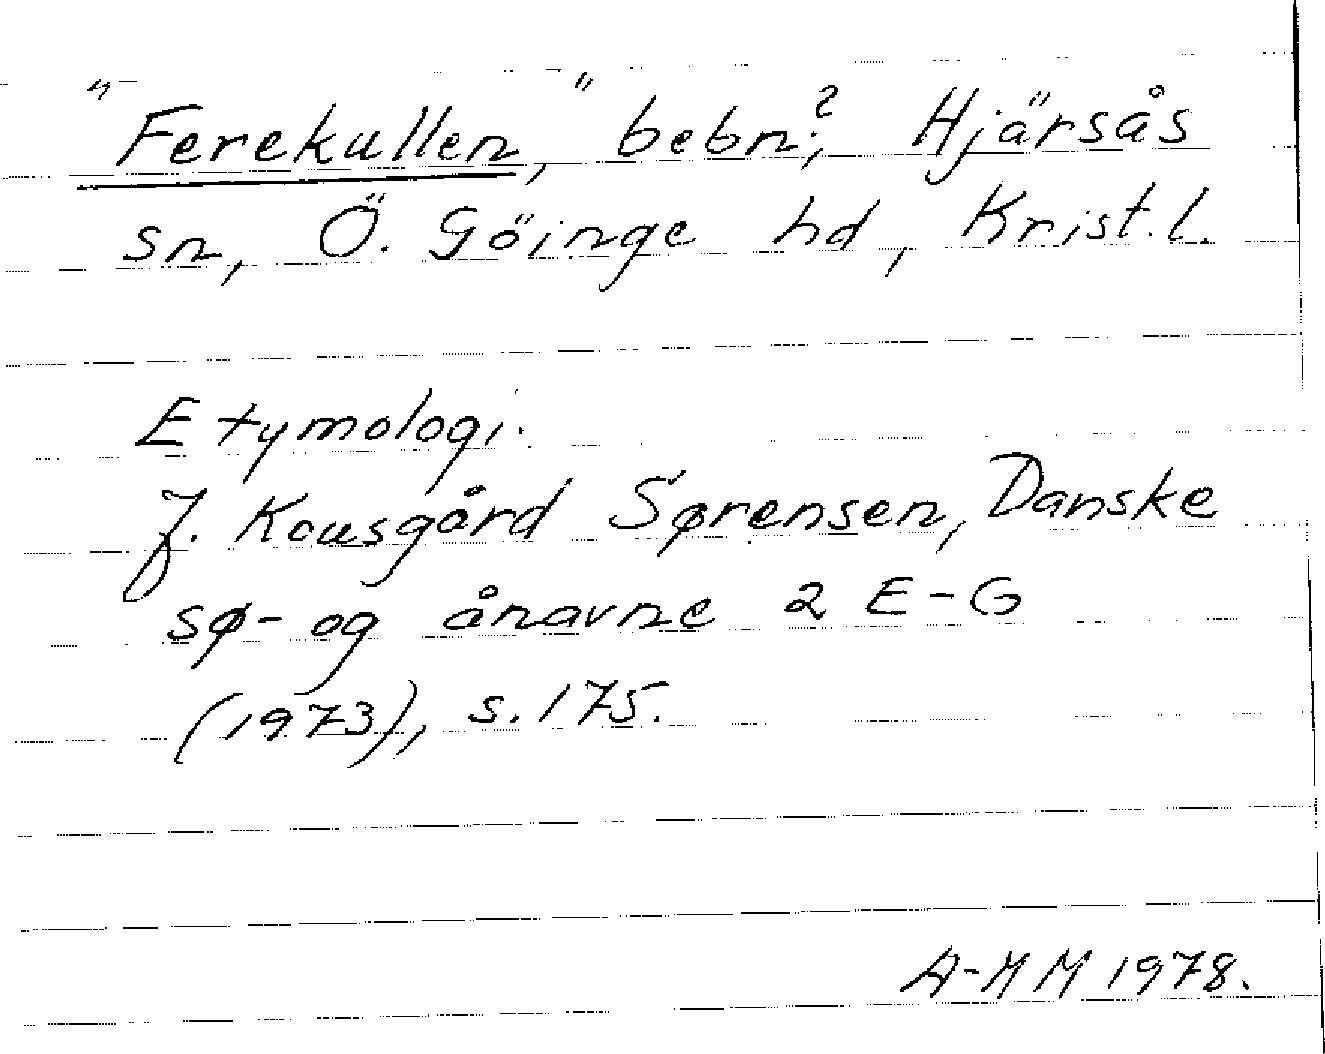 "Ferekullen," bebn?; Hjärsås
sn, Ö. Göinge hd, Krist. l.
Etymologi.
J. Kousgård Sørensen, Danske
sø- og ånavne 2 E-G
(1973), s. 175.
A-MM 1978.